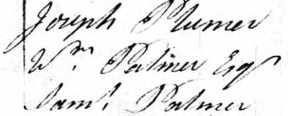 Joseph Plumer
Wm Palmer Esqr
Saml Palmer